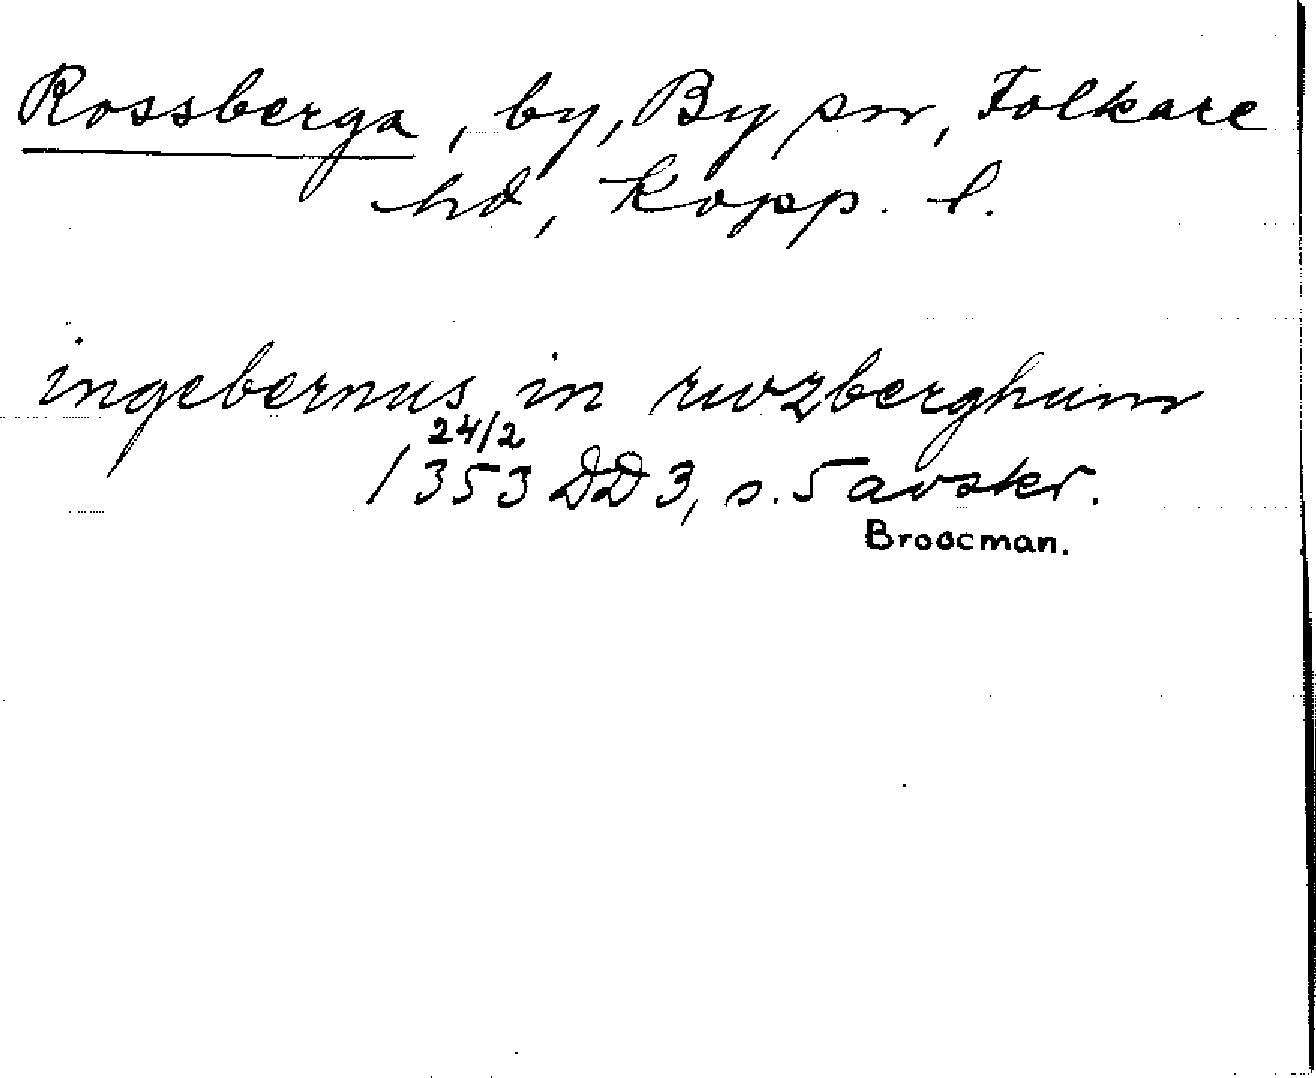 Rossberga, by, By sn, Folkare
hd, Kopp. l.
ingebernus in rwzberghum
24/2
1353 DD 3, s. 5 avskr.
Broocman.